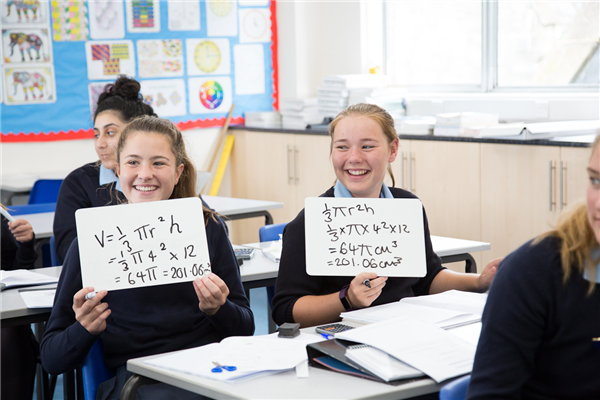 V = 1/3 πr²h
= 1/3 π4² × 12
= 64π = 201.06
1/3 πr²h
1/3 × π × 4² × 12
= 64π cm³
= 201.06 cm³